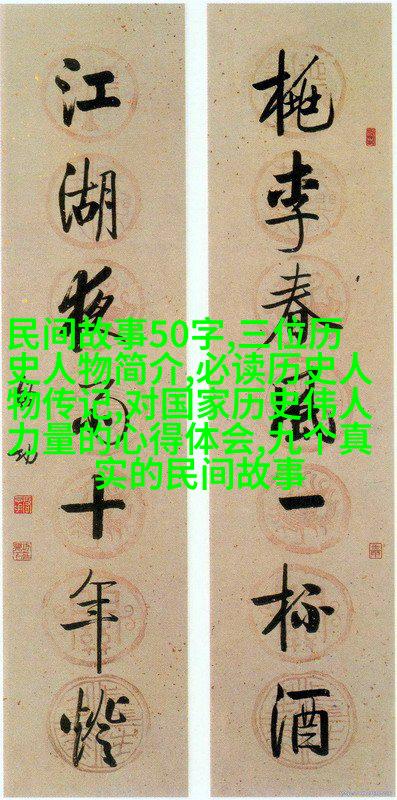 桃李春風一杯酒
江湖夜雨十年燈
民间故事50字,三位历
史人物简介,必读历史人
物传记,对国家历史伟人
力量的心得体会,九个真
实的民间故事